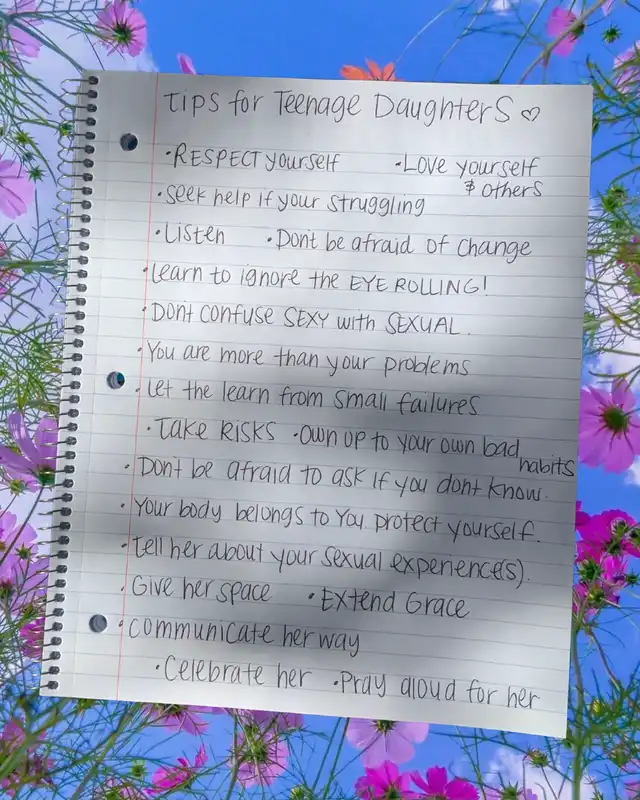 Tips for Teenage Daughters ♡
• Respect yourself • Love yourself
& others
• Seek help if your struggling
• Listen • Dont be afraid of change
• Learn to ignore the EYE ROLLING!
• Dont confuse SEXY with SEXUAL.
• You are more than your problems
• Let the learn from small failures
• Take RISKS • Own up to your own bad
habits
• Dont be afraid to ask if you dont know.
• Your body belongs to You, protect yourself.
• tell her about your sexual experience(s).
• Give her space • Extend Grace
• Communicate her way
• Celebrate her • Pray aloud for her